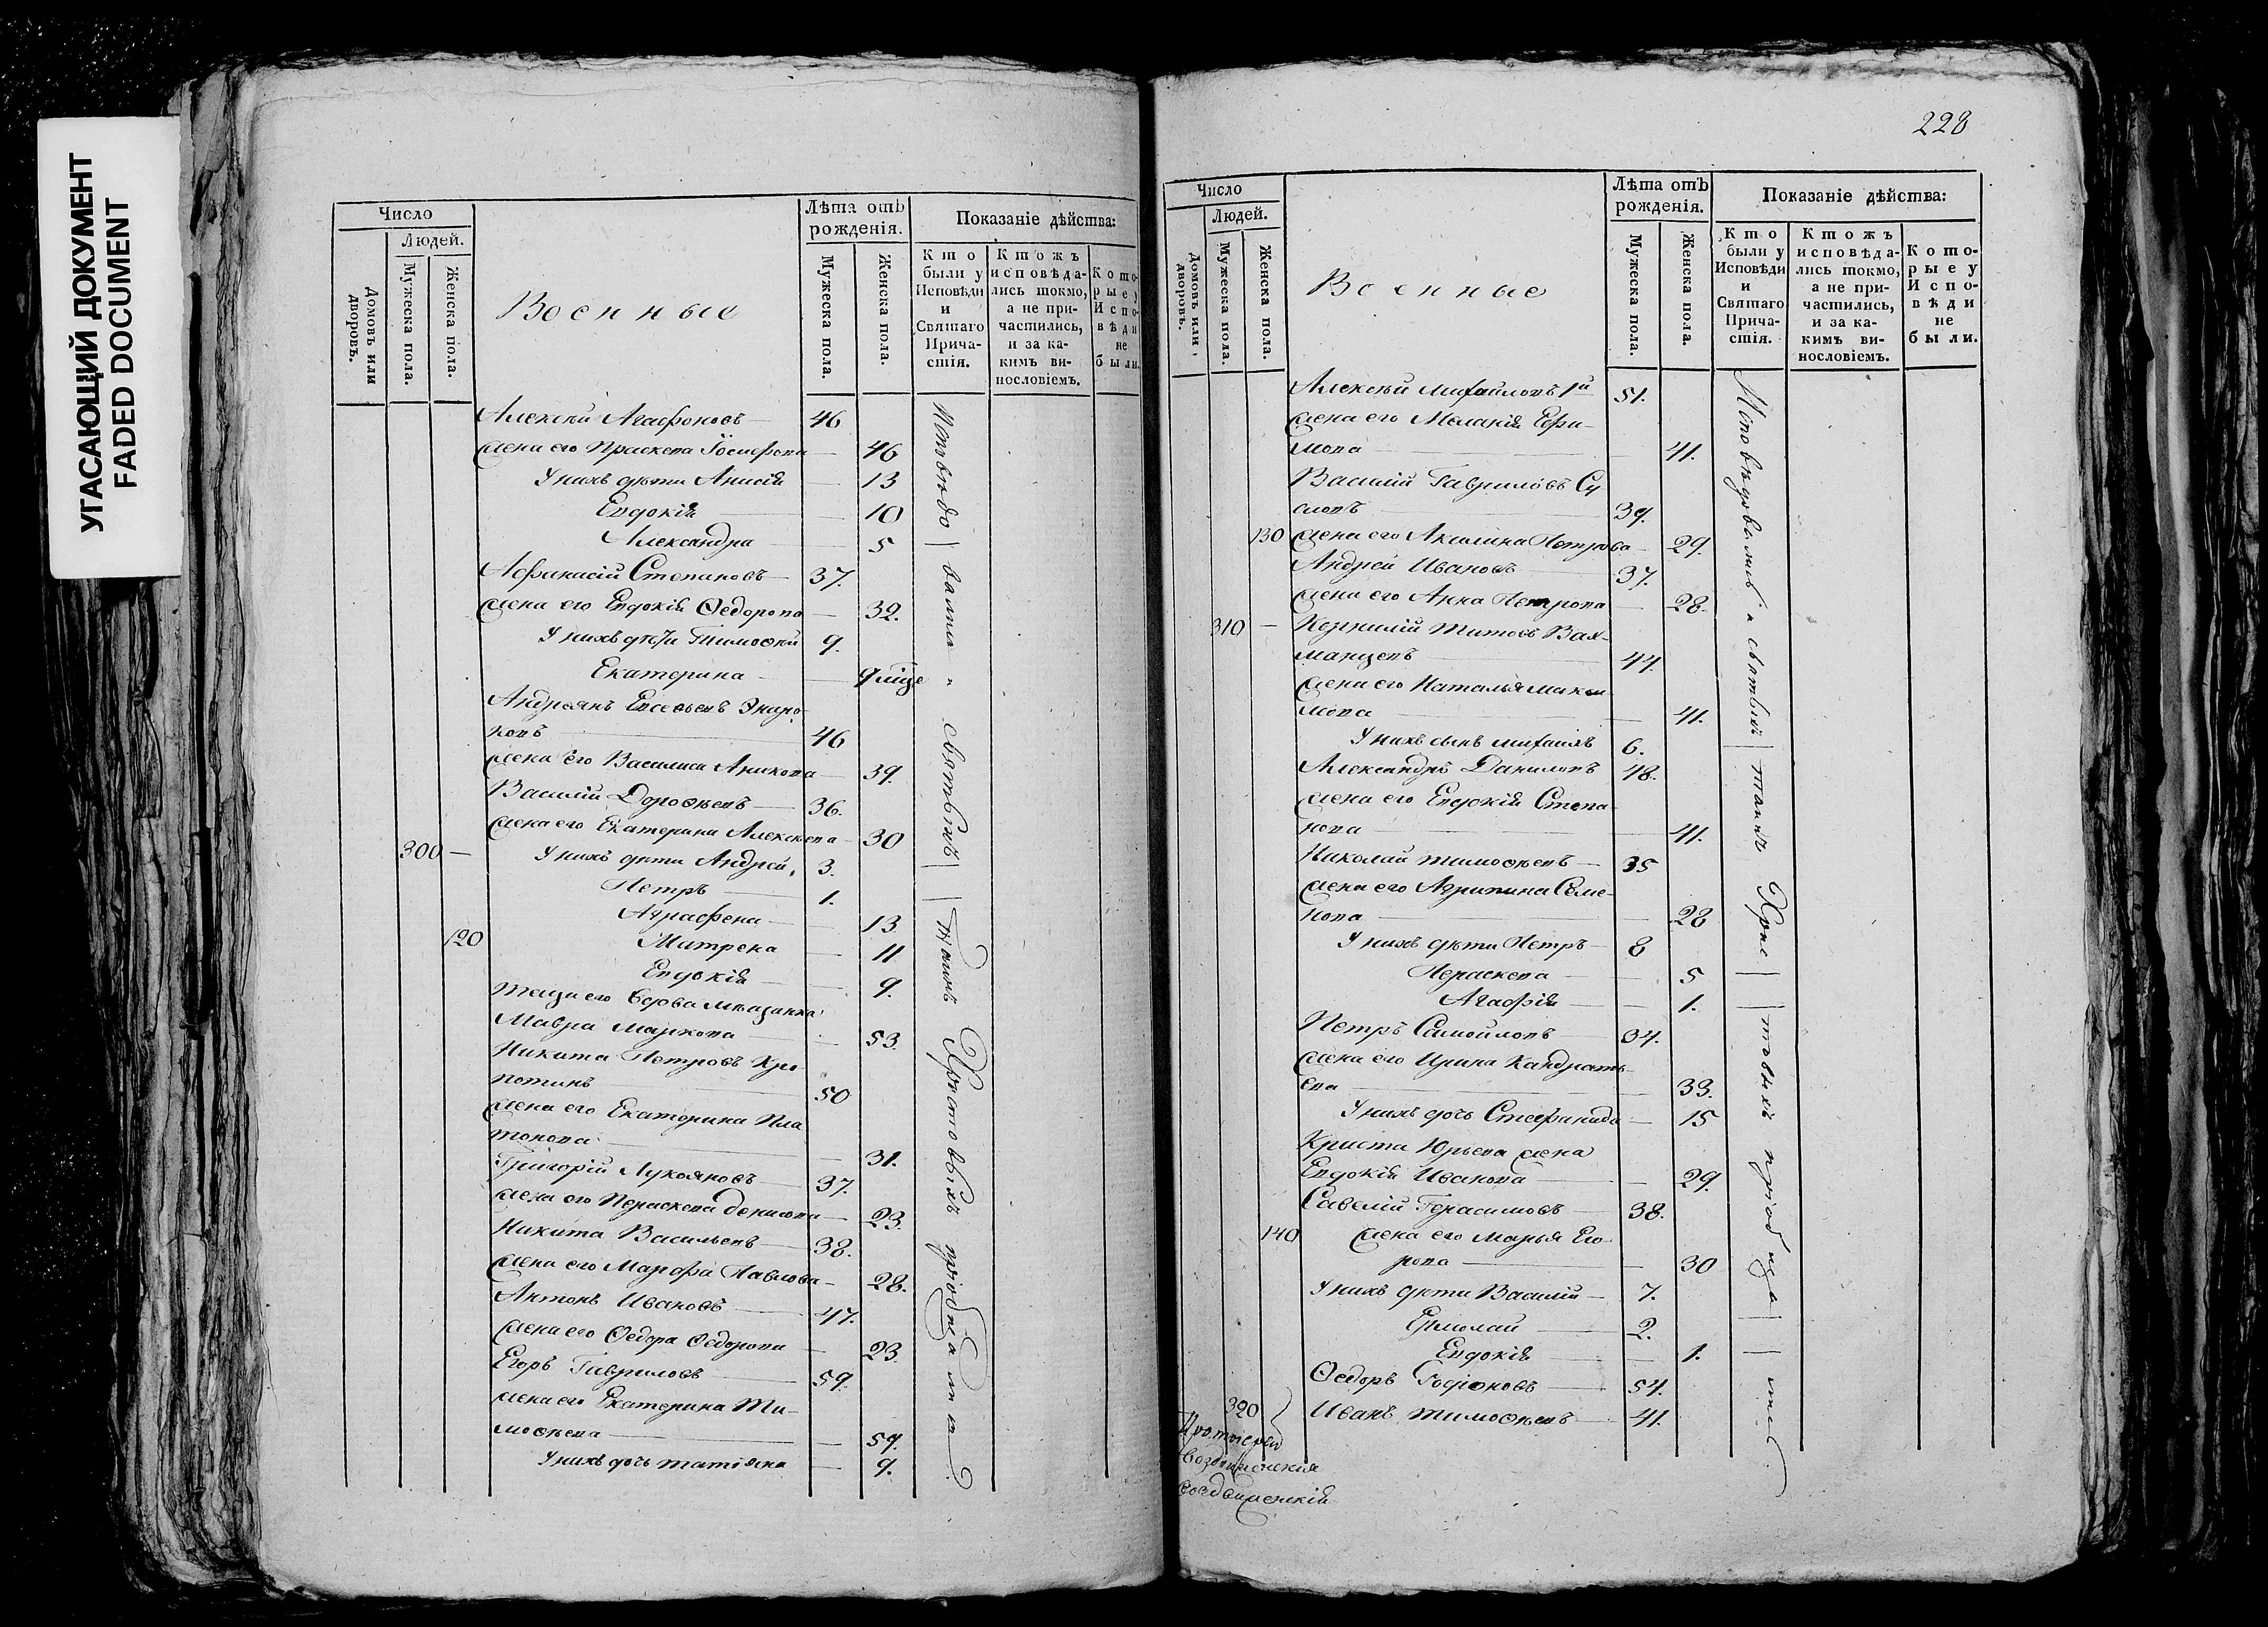 УГАСАЮЩИЙ ДОКУМЕНТ
FADED DOCUMENT
Число
Людей.
Домовъ или дворовъ.
Мужеска пола.
Женска пола.
Военные
Лѣта отъ рожденія.
Мужеска пола.
Женска пола.
Показаніе дѣйства:
Кто были у Исповѣди и Святаго Причастія.
Ктожъ исповѣдались токмо, а не причастились, и за какимъ винословіемъ.
Которые у Исповѣди не были.
Алексѣй Агафоновъ 46
жена его Праскева Іосифова 46
У нихъ дѣти Анисія 13
Евдокія 10
Александра 5
Афанасій Степановъ 37.
жена его Евдокія Ѳедорова 32.
У нихъ дѣти Тимоѳей 9.
Екатерина
Андреянъ Евсеевъ
46
жена его Василиса 39.
Василій Дороѳеевъ 36.
жена его Екатерина Алексѣева 30
300 У нихъ дѣти Андрей 3.
Петръ 1.
Аграфена 13
120 Матрена 11
Евдокія 9.
теща его вдова мѣщанка
Мавра Маркова 53.
Никита Петровъ Кро
потинъ 50
жена его Екатерина Пла
тонова 31.
Григорій Лукояновъ 37.
жена его Пераскева Денисова 23.
Никита Васильевъ 38.
жена его Марфа Павлова 28.
Антонъ Ивановъ 47.
жена его Ѳедора Ѳедорова 23.
Егоръ Гавриловъ 59.
жена его Екатерина Ти-
моѳеева 59.
У нихъ дочь Татіяна 9.
Исповѣдо вались и святыхъ Таинъ Христовыхъ пріобща
228
Число
Людей.
Домовъ или дворовъ.
Мужеска пола.
Женска пола.
Военные
Лѣта отъ рожденія.
Мужеска пола.
Женска пола.
Показаніе дѣйства:
Кто были у Исповѣди и Святаго Причастія.
Ктожъ исповѣдались токмо, а не причастились, и за какимъ винословіемъ.
Которые у Исповѣди не были.
Алексѣй Михайловъ 1й 51.
жена его Меланія Ефи-
мова 41.
Василій Гавриловъ Су
словъ 39.
130 жена его Акилина Петрова 29.
Андрей Ивановъ 37.
жена его Анна Петрова 28.
310 Корнилій Титовъ Вах-
манцевъ 44.
жена его Наталья Макси
мова 41.
У нихъ сынъ Михаилъ 6.
Александръ Даниловъ 48.
жена его Евдокія Степа
нова 41.
Николай Тимоѳеевъ 35
жена его Агрипина Семе-
нова 28
У нихъ дѣти Петръ 8
Пераскева 5
Агафія 1.
Петръ Самойловъ 34.
жена его Ирина Кандрать
ева 33.
У нихъ дочь Стефанида 15
Христа Юрьева жена
Евдокія Иванова 29.
Савелій Герасимовъ 38.
140 жена его Марья Его-
рова 30
У нихъ дѣти Василій 7.
Ермолай 2.
Евдокія 1.
Ѳедоръ 54.
320 Иванъ Тимоѳеевъ 41.
Исповѣдовались и святыхъ таинъ Хрис товыхъ пріобща
Протоіерей